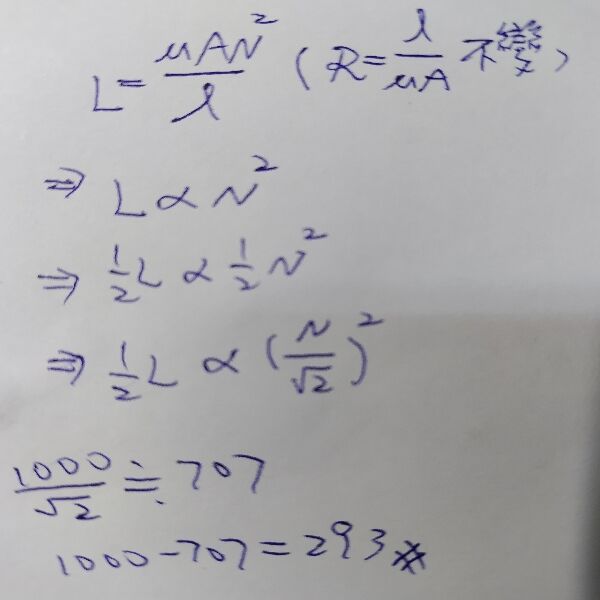 L = μAN² / l (R = l / μA 不變)
⇒ L ∝ N²
⇒ ½L ∝ ½N²
⇒ ½L ∝ (N/√2)²
1000/√2 ≒ 707
1000-707=293※